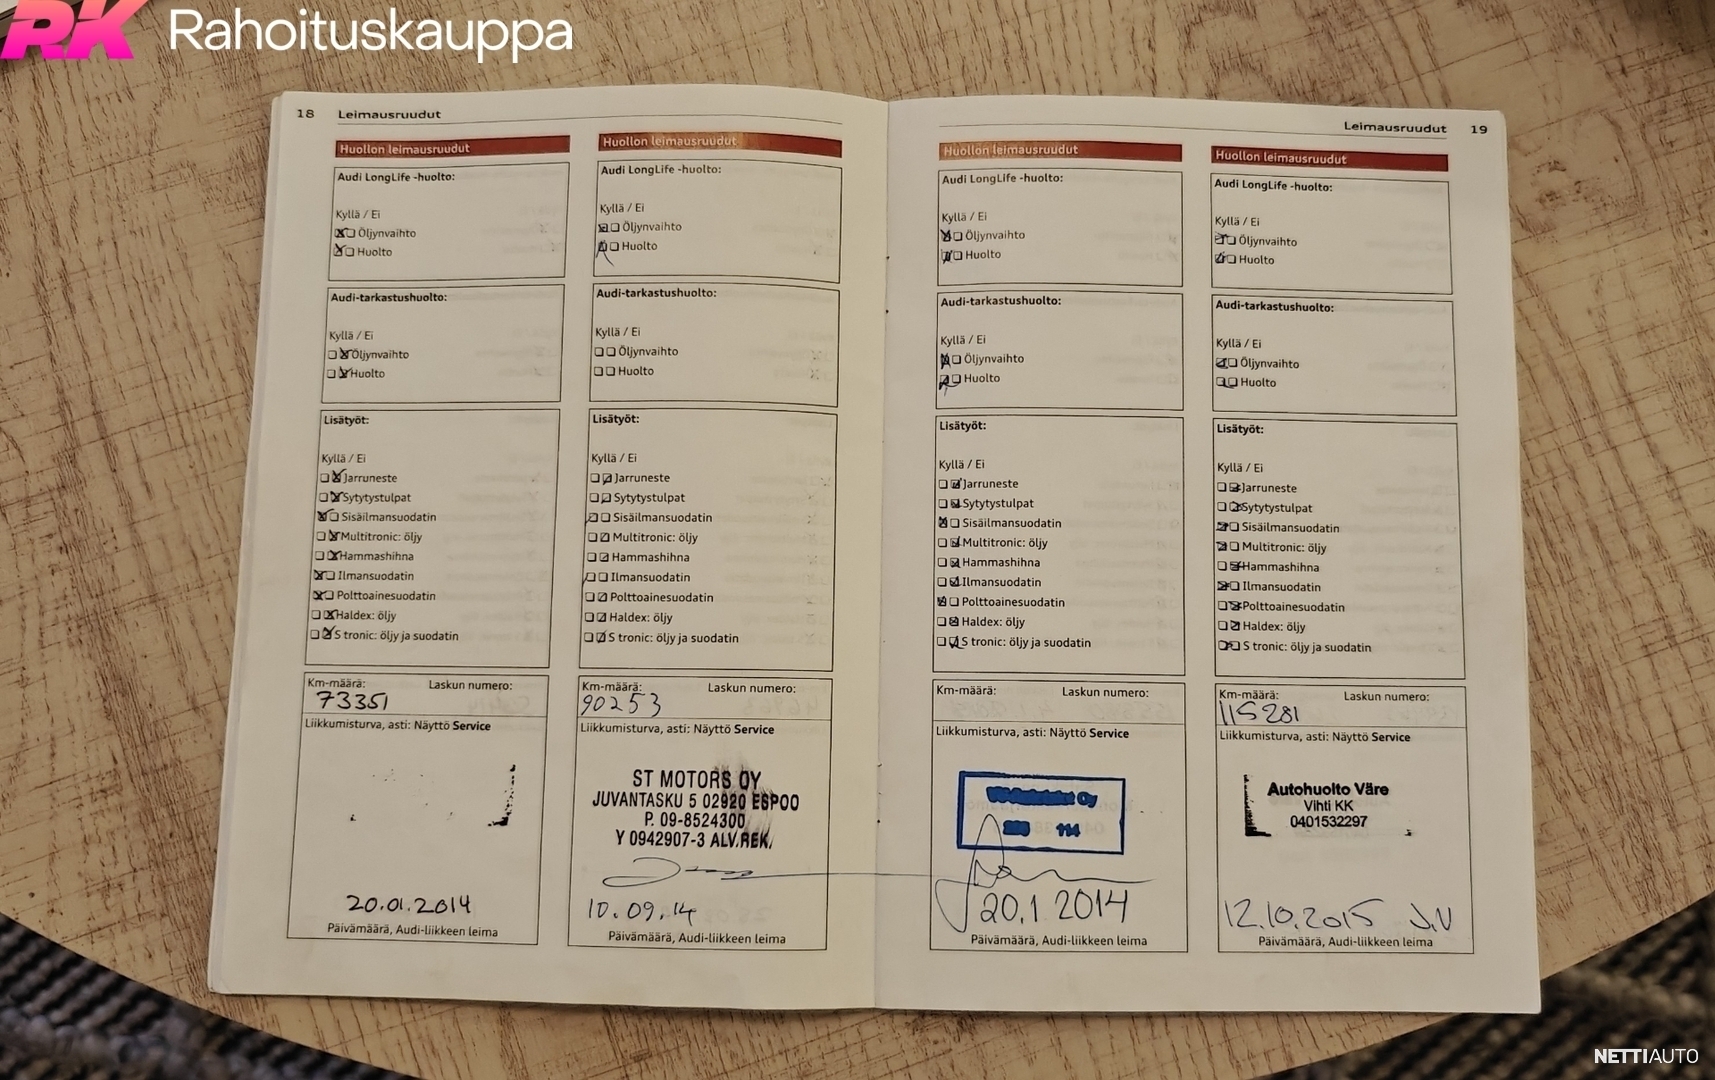 RK Rahoituskauppa
18 Leimausruudut
Huollon leimausruudut
Audi LongLife -huolto:
Kyllä / Ei
Öljynvaihto
Huolto
Audi-tarkastushuolto:
Kyllä / Ei
Öljynvaihto
Huolto
Lisätyöt:
Kyllä / Ei
Jarruneste
Sytytystulpat
Sisäilmansuodatin
Multitronic: öljy
Hammashihna
Ilmansuodatin
Polttoainesuodatin
Haldex: öljy
S tronic: öljy ja suodatin
Km-määrä: Laskun numero:
73351
Liikkumisturva, asti: Näyttö Service
20.01.2014
Päivämäärä, Audi-liikkeen leima
Huollon leimausruudut
Audi LongLife -huolto:
Kyllä / Ei
Öljynvaihto
Huolto
Audi-tarkastushuolto:
Kyllä / Ei
Öljynvaihto
Huolto
Lisätyöt:
Kyllä / Ei
Jarruneste
Sytytystulpat
Sisäilmansuodatin
Multitronic: öljy
Hammashihna
Ilmansuodatin
Polttoainesuodatin
Haldex: öljy
S tronic: öljy ja suodatin
Km-määrä: Laskun numero:
90253
Liikkumisturva, asti: Näyttö Service
ST MOTORS OY
JUVANTASKU 5 02920 ESPOO
P. 09-8524300
Y 0942907-3 ALV.REK.
10.09.14
Päivämäärä, Audi-liikkeen leima
Leimausruudut 19
Huollon leimausruudut
Audi LongLife -huolto:
Kyllä / Ei
Öljynvaihto
Huolto
Audi-tarkastushuolto:
Kyllä / Ei
Öljynvaihto
Huolto
Lisätyöt:
Kyllä / Ei
Jarruneste
Sytytystulpat
Sisäilmansuodatin
Multitronic: öljy
Hammashihna
Ilmansuodatin
Polttoainesuodatin
Haldex: öljy
S tronic: öljy ja suodatin
Km-määrä: Laskun numero:
Liikkumisturva, asti: Näyttö Service
Oy
114
20.1 2014
Päivämäärä, Audi-liikkeen leima
Huollon leimausruudut
Audi LongLife -huolto:
Kyllä / Ei
Öljynvaihto
Huolto
Audi-tarkastushuolto:
Kyllä / Ei
Öljynvaihto
Huolto
Lisätyöt:
Kyllä / Ei
Jarruneste
Sytytystulpat
Sisäilmansuodatin
Multitronic: öljy
Hammashihna
Ilmansuodatin
Polttoainesuodatin
Haldex: öljy
S tronic: öljy ja suodatin
Km-määrä: Laskun numero:
115281
Liikkumisturva, asti: Näyttö Service
Autohuolto Väre
Vihti KK
0401532297
12.10.2015 J.V
Päivämäärä, Audi-liikkeen leima
NETTIAUTO